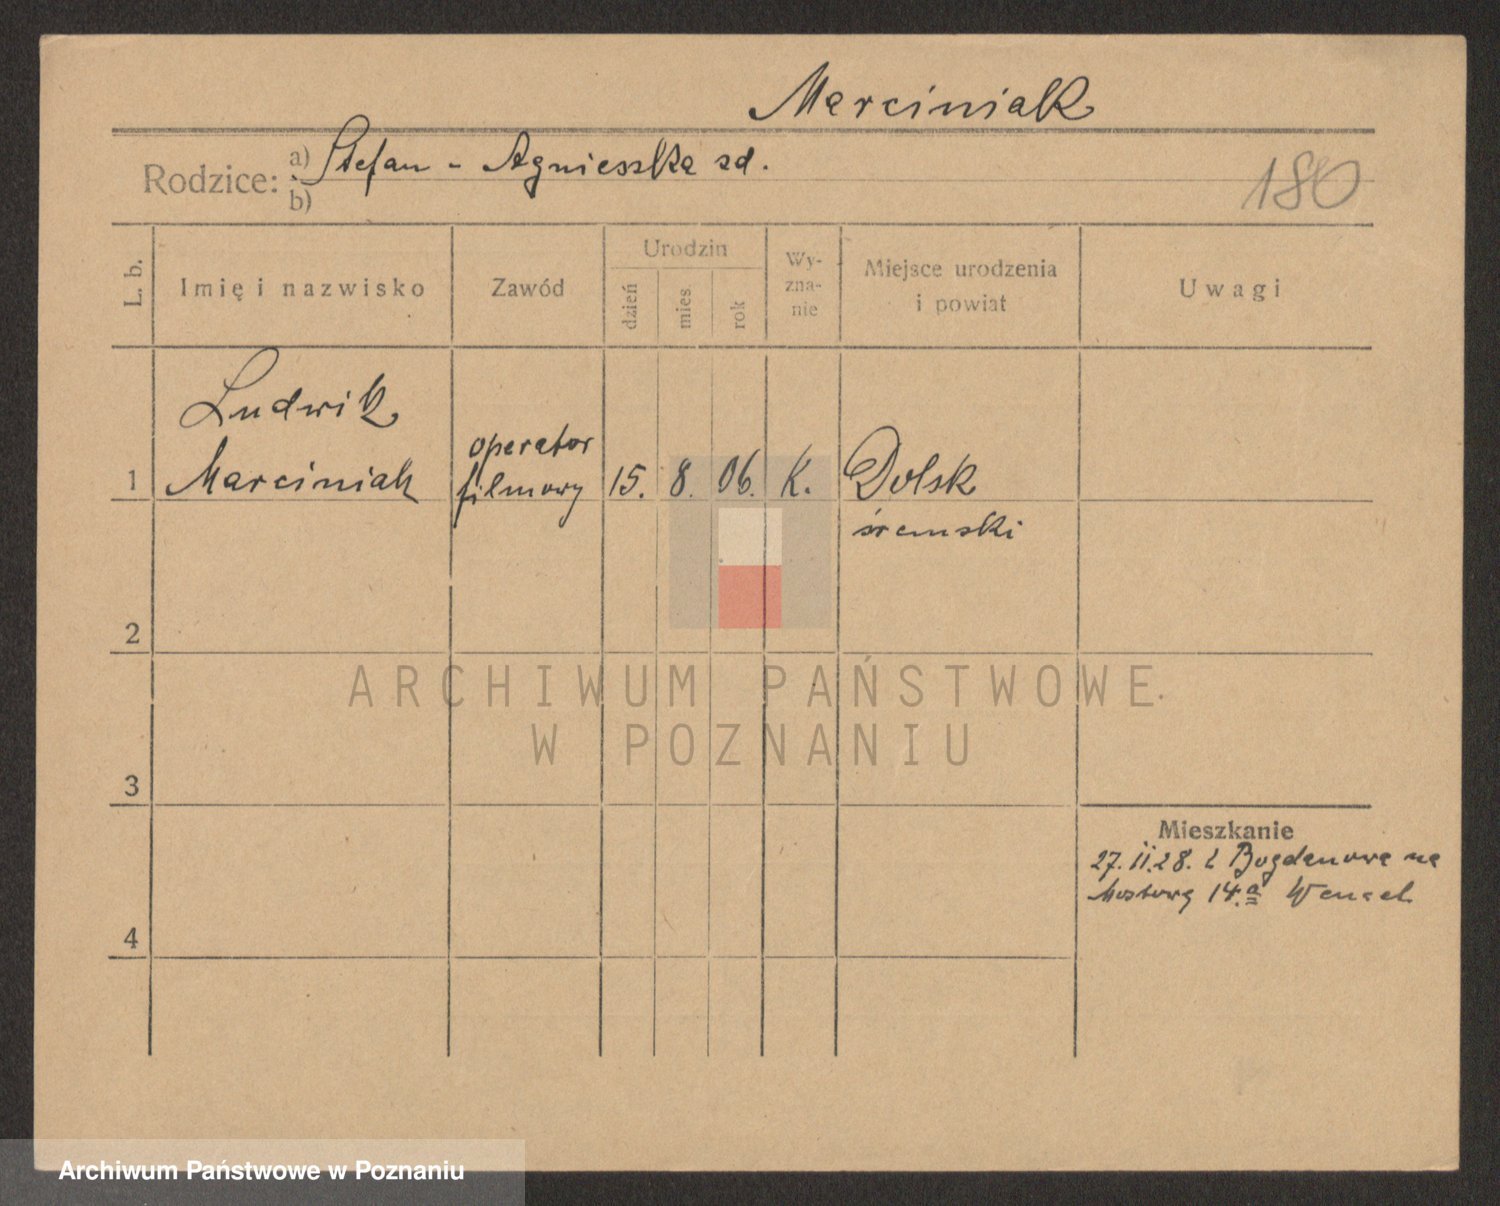 Marciniak
Rodzice: a) Stefan - Agnieszka zd.
b)
180
L. b.
Imię i nazwisko
Zawód
Urodzin
dzień
mies
rok
Wy-
zna-
nie
Miejsce urodzenia
i powiat
Uwagi
Ludwik
1 Marciniak
operator
filmowy
15. 8. 06. K. Dolsk
śremski
2
ARCHIWUM PAŃSTWOWE
W POZNANIU
3
Mieszkanie
27. II. 28. z Bogdanowa na
Mostową 14.a
4
Archiwum Państwowe w Poznaniu